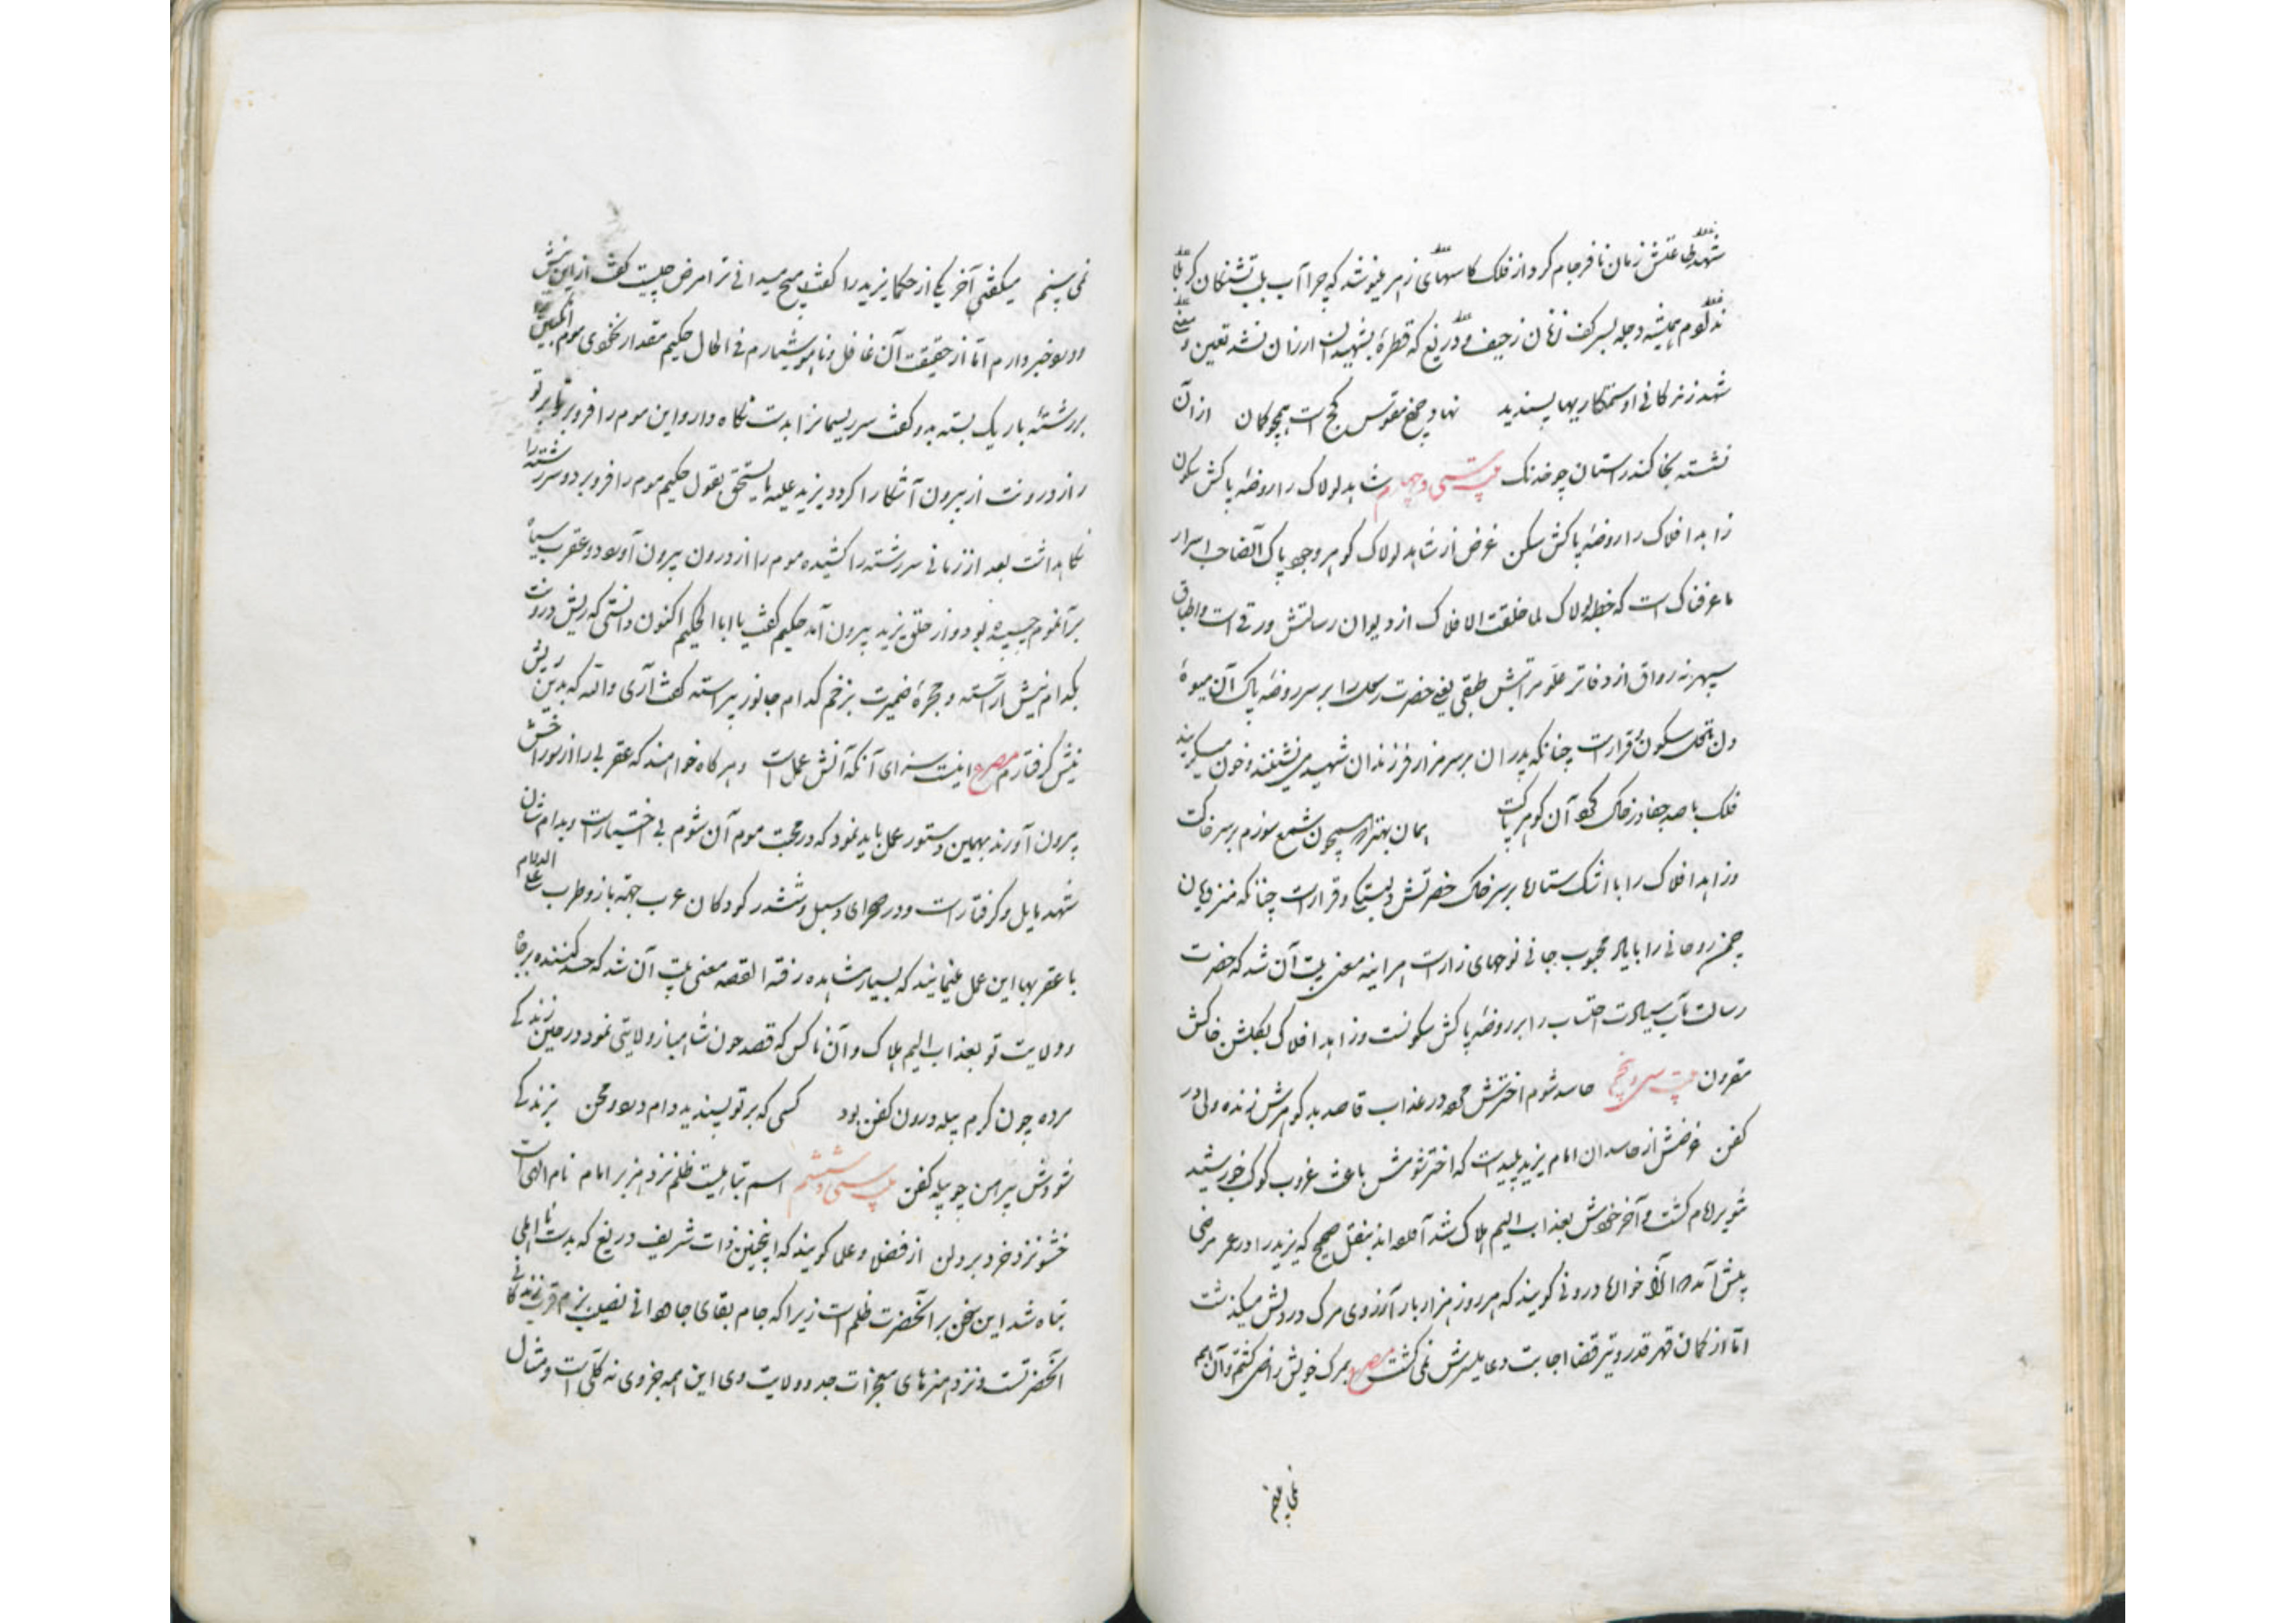 شهد طاعتش زمان نافرجام کرد از فلک کاسهای زهر مینوشد که چرا آب بلب تشنکان کربلا
ند لوم همیشه دجله بسر کف زنان زحیف و دریغ که قطرهٔ بشهیدان ارزان نشد تعین و معنی
شهد زندکانی او ستمکاریها پسندید نهاد چرخ مقوس کج است همچو کمان از آن
نشسته بخاکند راستان چو خدنک بیت سی و چهارم شاهد لولاک را روضهٔ پاکش سکون
زاهد افلاک را روضهٔ پاکش سکن غرض از شاهد لولاک کوهر وجود پاک آنصاحب اسرار
ما عرفناک است که خطبه لولاک لما خلقت الافلاک از دیوان رسالتش ورقی است و اطباق
سپهر نه رواق از دفاتر علو مراتبش طبقی یعنی حضرت رسول را بر سر روضهٔ پاک آن میوهٔ
دل محل سکون و قرار است چنانکه پدران بر سر مزار فرزندان شهید می نشینند و خون میکریند
فلک با صد جفا در خاک کرد آن کوهر پاکت بمان بهتر که همچون شمع سوزم بر سر خاکت
و زاهد افلاک را با اشک ستاره‌ها بر سر خاک حضرتش دلبستکی و قرار است چنانکه
چمن روحانی را بیاد محبوب جانی نوحهای زار است هر اینه معنی بیت آن شد که حضرت
رسالت مآب سیادت احتساب را بر روضهٔ پاکش سکونست و زاهد افلاک بکلشن خاکش
مقرون بیت سی و پنجم حاسد شوم اخترش مرده در عذاب قاصد بد کوهرش زنده ولی در
کفن غرضش از حاسدان امام یزید پلید است که اختر شومش باعث غروب کوکب خورشید
تنویر امام کشت و آخر خودش بعذاب الیم هلاک شد آورده اند بنقل صحیح که یزید را در عمر مرضی
پیش آمد از خوره‌ای درونی کویند که هر روز هزار بار آرزوی مرک در دلش میکذشت
اما از کمان قهر قدر و تیر قضا اجابت دعا میسرش نمی کشت مصرع بمرک خویش راضی کشتم و آن هم
نمی بینم
نمی بینم میکفتی آخر یکی از حکما یزید را کفت هیچ میدانی ترا مرض چیست کفت از این نیش
درد خبر دارم اما از حقیقت آن غافل و ناهوشیارم فی الحال حکیم مقدار نخودی موم انکبین
بر رشتهٔ باریک بسته بدو کفت سر ریسمانرا بدست نکاه دار و این موم را فرو بر تا بر تو
راز درونت از بیرون آشکارا کردد یزید علیه ما یستحق بقول حکیم موم را فرو برد و سر رشته را
نکاهداشت بعد از زمانی سر رشته را کشیده موم را از درون بیرون آورد دو عقرب سیاه
بر آنموم چسبیده بود و از حلق یزید بیرون آمد حکیم کفت یا ابا الحکیم اکنون دانستی که ریش درونت
بکدام نیش آراسته و حجرهٔ ضمیرت بزخم کدام جانور پیراسته کفت آری والله که بدین ریش
نیش کرفتارم مصرع اینست سزای آنکه آنش عمل است و هر کاه خواهند که عقربی را از سوراخش
بیرون آورند بهمین دستور عمل باید نمود که در محبت موم آن شوم بی اختیار است و بدام شان
شهد مایل و کرفتار است و در صحرای دسبل و ششدر کودکان عرب جهة بازی و طرب علی الدوام
با عقربها این عمل مینمایند که بسیار مشاهده رفته القصه معنی بیت آن شد که حسد کننده بر جاه
و ولایت تو بعذاب الیم هلاک و آن ناکس که قصد خون شاهباز ولایتی نمود در حین زندکی
مرده چون کرم پیله درون کفن بود کسی که بر تو پسندید دام درد و محن بزندکی
شودش پیرهن چو پیله کفن بیت سی و ششم اسم تباهیت ظلم نزد هزبر امام نام الهی است
خشو نزد خرد بر دلن از فضلا و علما کویند که اینچنین ذات شریف دریغ که بدست نا اهلی
تباه شد این سخن بر آنحضرت ظلم است زیرا که جام بقای جاودانی نصیب بزم قرب زندکانی
آنحضرتست و نزد هنرهای معجزات جد و ولایت وی این همه جزوی نه کلی است و مثال